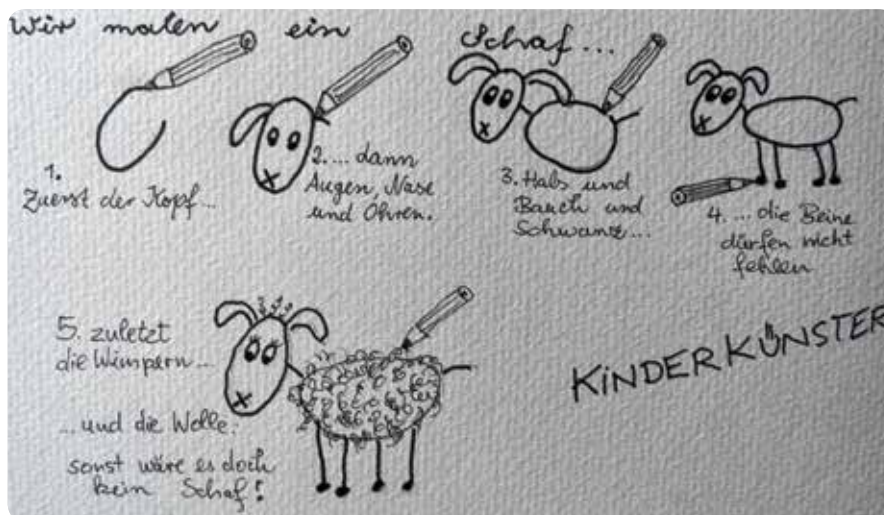 Wir malen ein Schaf...
1.
Zuerst der Kopf...
2. ... dann
Augen, Nase
und Ohren.
3. Hals und
Bauch und
Schwanz...
4. ... die Beine
dürfen nicht
fehlen
5. zuletzt
die Wimpern...
... und die Wolle.
sonst wäre es doch
kein Schaf!
KINDERKÜNSTER